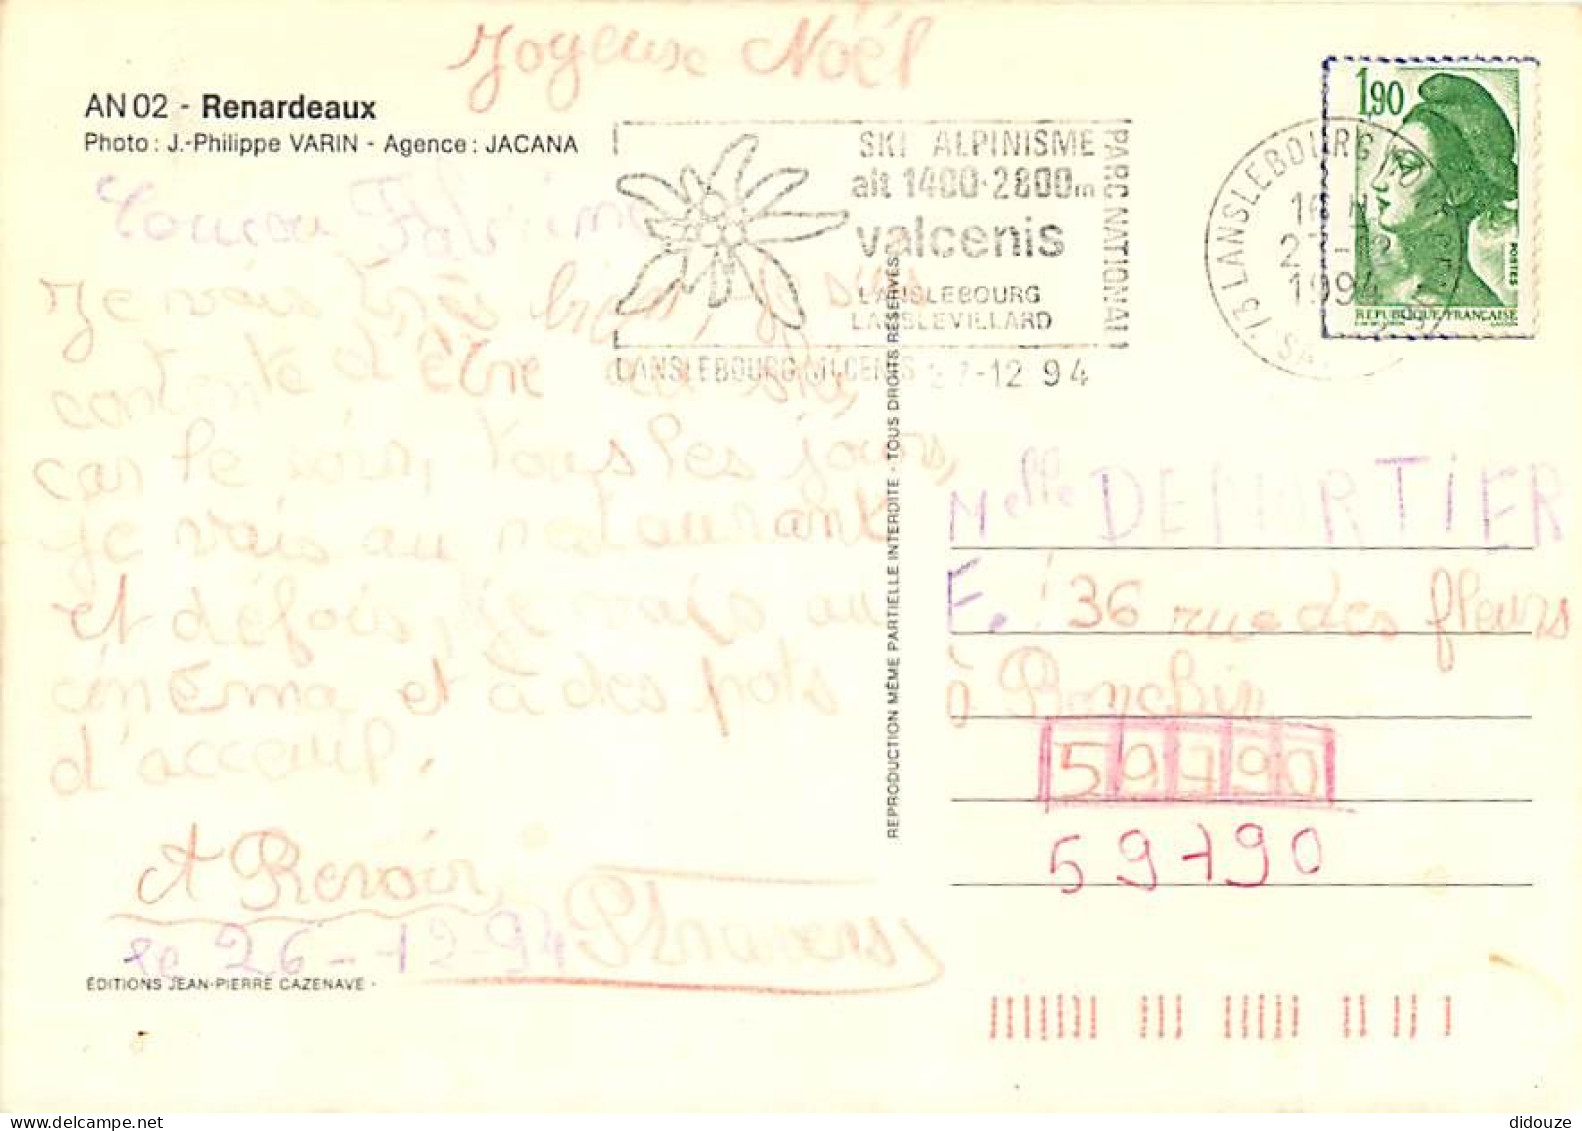 Joyeuse Noël
AN 02 - Renardeaux
Photo : J.-Philippe VARIN - Agence : JACANA
Coucou Fabienne
Je vais très bien, je suis
contente d'être au ski,
car le soir, tous les jours,
je vais au restaurant
et défois, je vais au
cinéma et à des pots
d'acceuil.
A Revoir
le 26-12-94
ÉDITIONS JEAN-PIERRE CAZENAVE -
REPRODUCTION MÊME PARTIELLE INTERDITE - TOUS DROITS RÉSERVÉS
SKI ALPINISME
alt 1400-2800m
valcenis
LANSLEBOURG
LANSLEVILLARD
PARC NATIONAL
LANSLEBOURG-MT-CENIS 27-12 94
73 LANSLEBOURG
16 H
27-12
1994
1,90
POSTES
REPUBLIQUE FRANÇAISE
Melle DEMORTIER
F. 36 rue des fleurs
à Ronchin
59790
59790
didouze